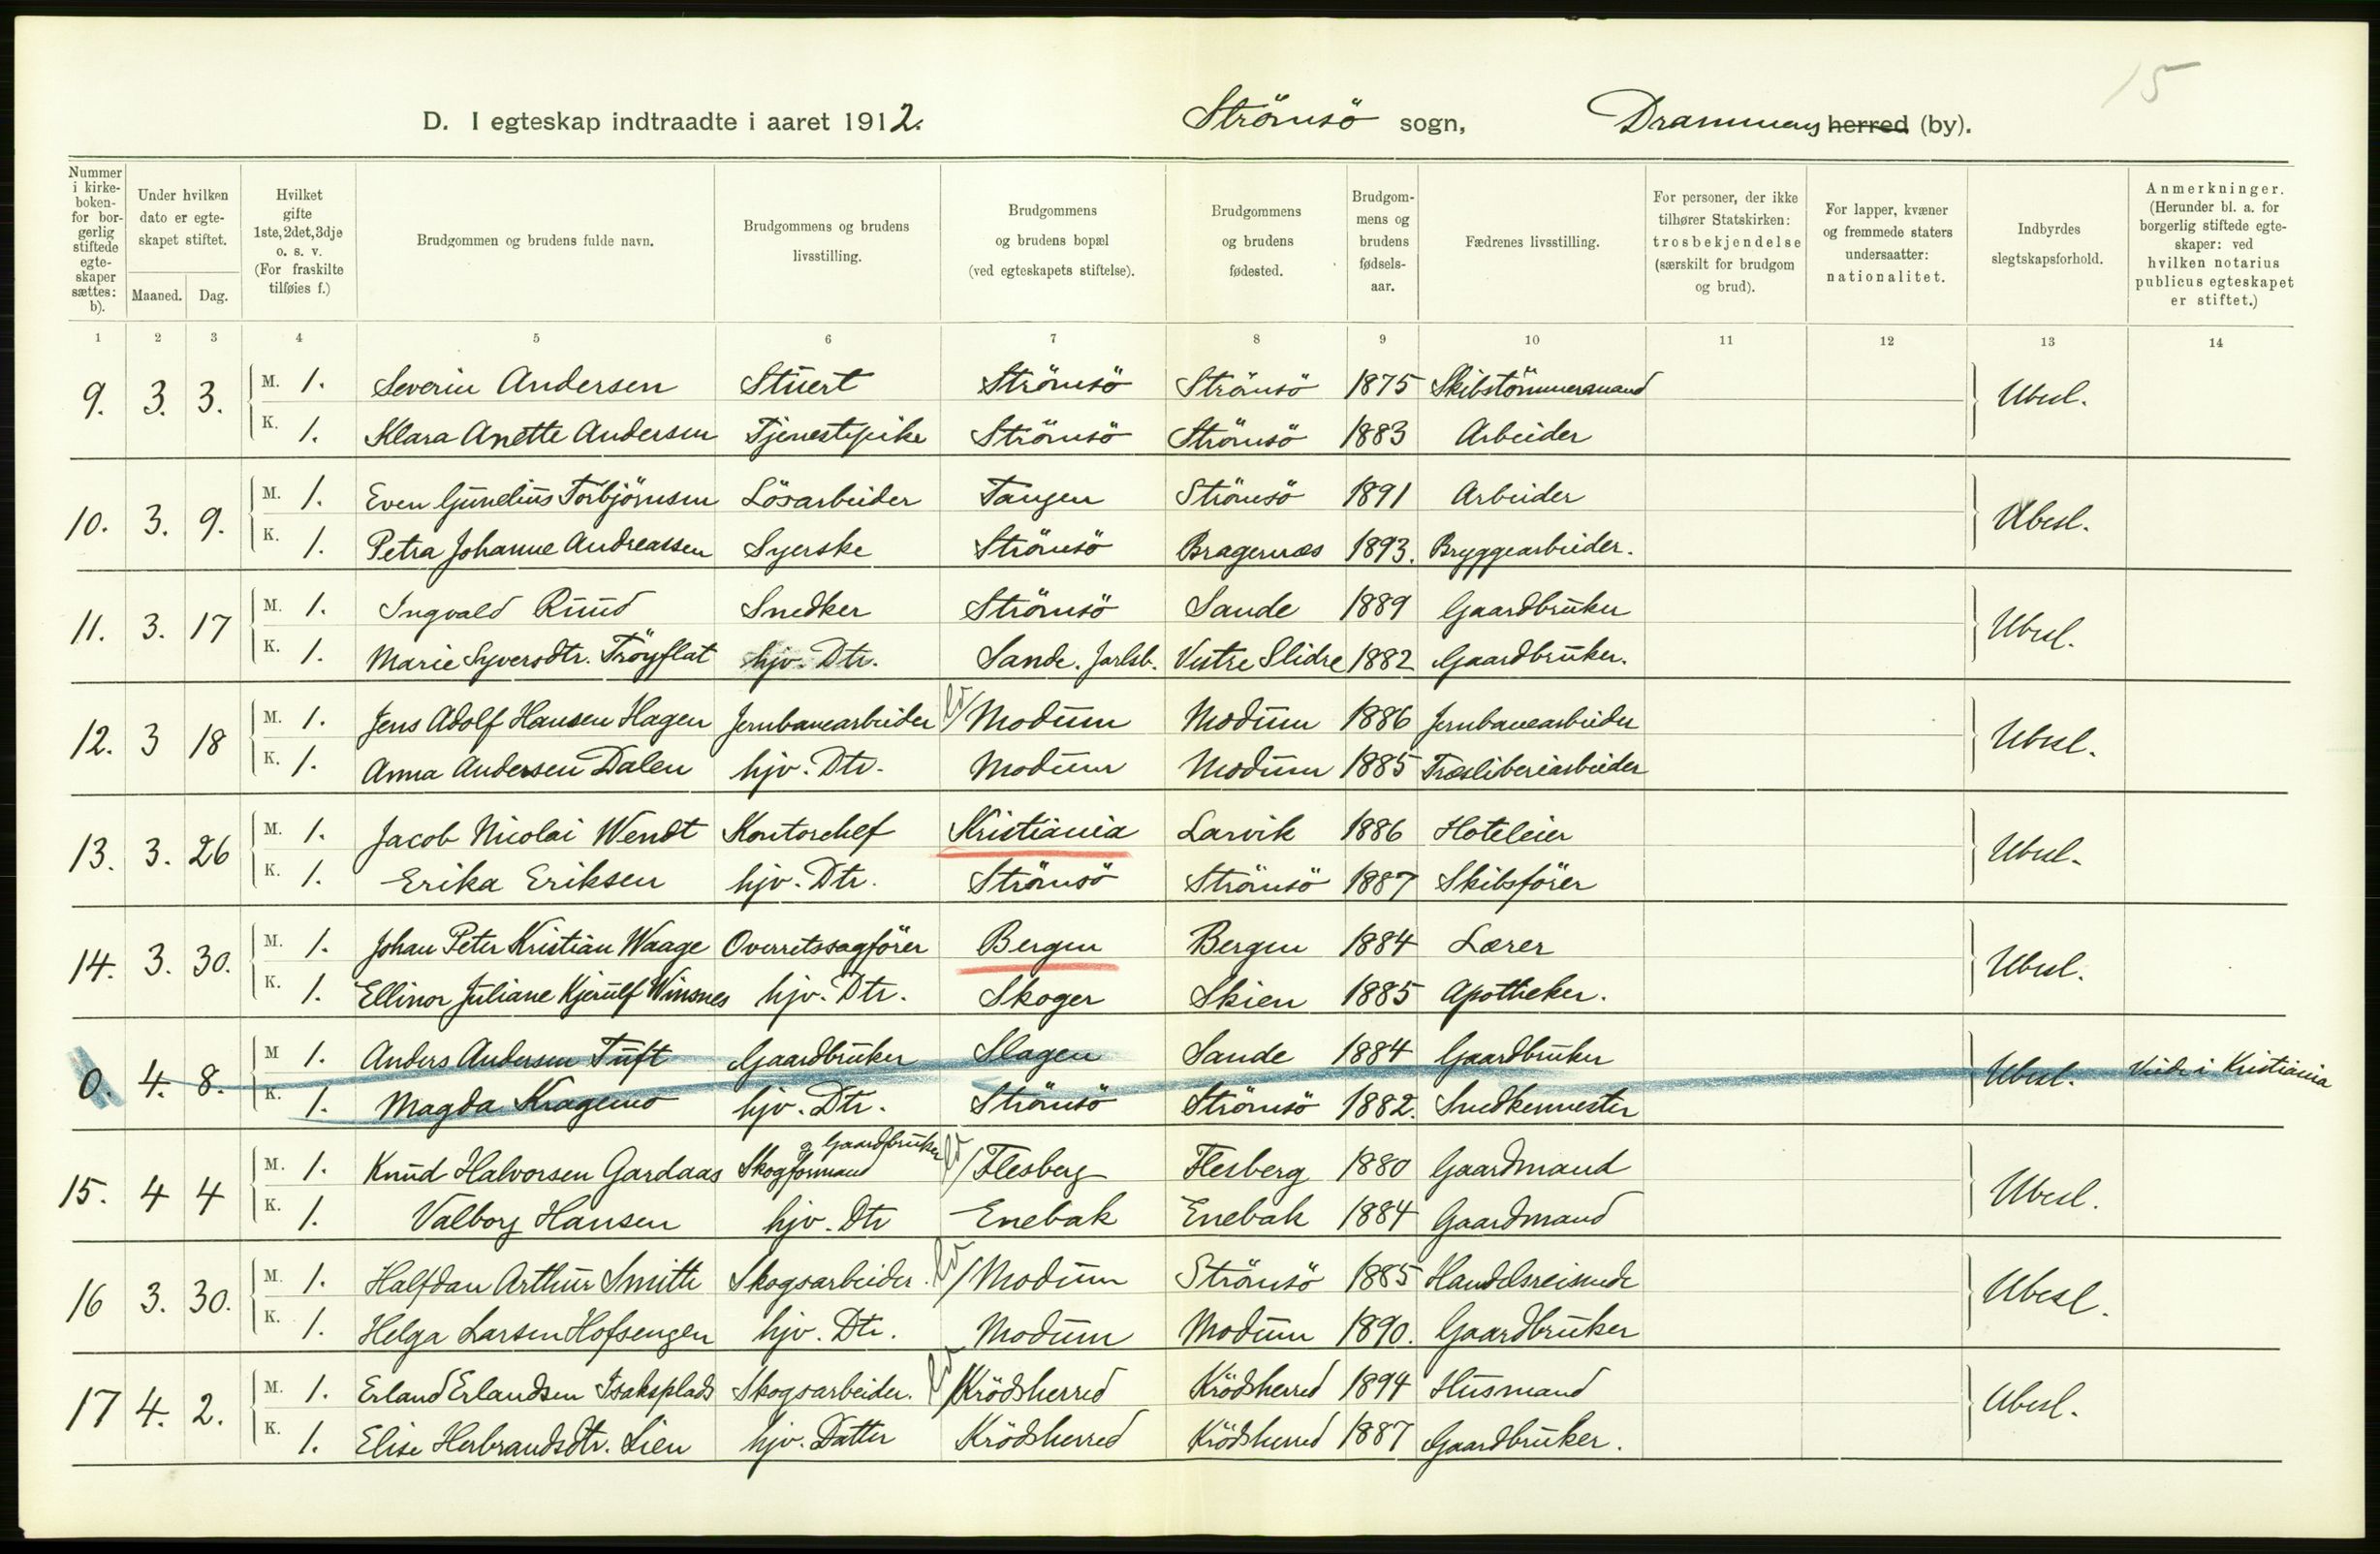 15
D. I egteskap indtraadte i aaret 1912. Strömsö sogn, Drammens herred (by).
Nummer i kirke-boken- for bor-gerlig stiftede egte-skaper sættes: b). Under hvilken dato er egte-skapet stiftet. Maaned. Dag. Hvilket gifte 1ste, 2det, 3dje o. s. v. (For fraskilte tilføies f.) Brudgommen og brudens fulde navn. Brudgommens og brudens livsstilling. Brudgommens og brudens bopæl (ved egteskapets stiftelse). Brudgommens og brudens fødested. Brudgom-mens og brudens fødsels-aar. Fædrenes livsstilling. For personer, der ikke tilhører Statskirken: trosbekjendelse (særskilt for brudgom og brud). For lapper, kvæner og fremmede staters undersaatter: nationalitet. Indbyrdes slegtskapsforhold. Anmerkninger. (Herunder bl. a. for borgerlig stiftede egte-skaper: ved hvilken notarius publicus egteskapet er stiftet.)
1 2 3 4 5 6 7 8 9 10 11 12 13 14
9. 3. 3. M. 1. Severin Andersen Stuert Strömsö Strömsö 1875 Skibstömmermand Ubesl.
K. 1. Klara Anette Andersen Tjenestepike Strömsö Strömsö 1883 Arbeider
10. 3. 9. M. 1. Even Gundius Torbjörnsen Lösarbeider Tangen Strömsö 1891 Arbeider Ubesl.
K. 1. Petra Johanne Andreassen Syerske Strömsö Bragernæs 1893. Bryggearbeider.
11. 3. 17 M. 1. Ingvald Ruud Snedker Strömsö Sande 1889 Gaardbruker Ubesl.
K. 1. Marie Syversdtr. Tröyflat hjv. Dtr. Sande. Jarlsb. Vestre Slidre 1882 Gaardbruker.
12. 3 18 M. 1. Jens Adolf Hansen Hagen Jernbanearbeider / Modum Modum 1886 Jernbanearbeider Ubesl.
K. 1. Anna Andersen Dalen hjv. Dtr. Modum Modum 1885 Træsliberiarbeider
13. 3. 26 M. 1. Jacob Nicolai Wendt Kontorchef Kristiania Larvik 1886 Hoteleier Ubesl.
K. 1. Erika Eriksen hjv. Dtr. Strömsö Strömsö 1887 Skibsförer
14. 3. 30. M. 1. Johan Peter Kristian Waage Overretssagförer Bergen Bergen 1884 Lærer Ubesl.
K. 1. Ellinor Juliane Kjerulf Winsnes hjv. Dtr. Skoger Skien 1885 Apotheker.
0. 4. 8. M 1. Anders Andersen Tuft Gaardbruker Slagen Sande 1884 Gaardbruker Ubesl. Viede i Kristiania
K. 1. Magda Kragemo hjv. Dtr. Strömsö Strömsö 1882. Snedkermester
15. 4 4 M. 1. Knud Halvorsen Gardaas Skogformand og Gaardbruker / Flesberg Flesberg 1880 Gaardmand Ubesl.
K. 1. Valborg Hansen hjv. Dtr Enebak Enebak 1884 Gaardmand
16 3. 30. M. 1. Halfdan Arthur Smith Skogsarbeider. / Modum Strömsö 1885 Handelsreisende Ubesl.
K. 1. Helga Larsen Hofsengen hjv. Dtr. Modum Modum 1890. Gaardbruker
17 4. 2. M. 1. Erland Erlandsen Isaksplads Skogsarbeider. / Krödsherred Krödsherred 1894 Husmand Ubesl.
K. 1. Elise Herbrandsdtr. Lien hjv. Datter Krödsherred Krödsherred 1887 Gaardbruker.